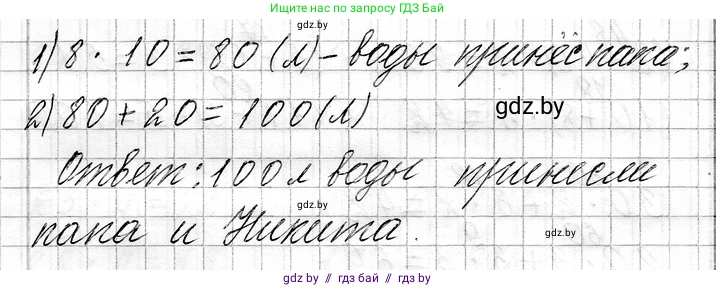 Ищите нас по запросу ГДЗ Бай
gdz.by
1) 8 · 10 = 80 (л) – воды принёс папа;
gdz.by
2) 80 + 20 = 100 (л)
Ответ: 100 л воды принесли
gdz.by
папа и Никита.
gdz.by
gdz.by // гдз бай // гдз by